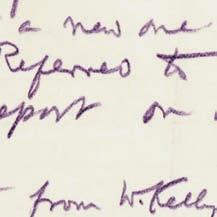 a new one
Referred to
eport on
from W. Kelly